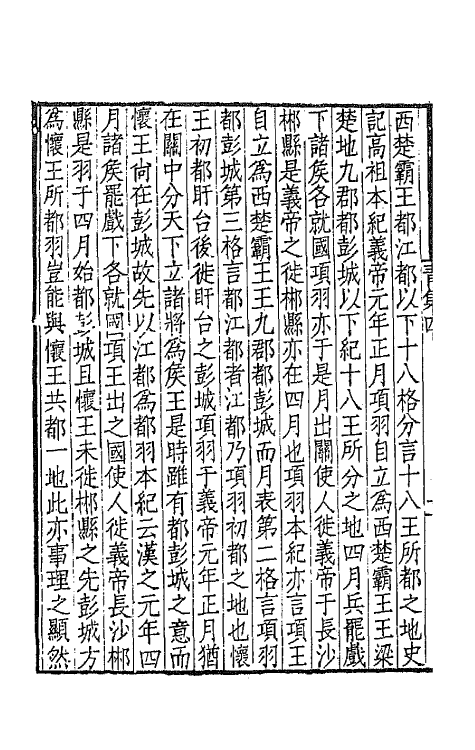 西楚霸王都江都以下十八格分言十八王所都之地史
記高祖本紀義帝元年正月項羽自立為西楚霸王王梁
楚地九郡都彭城以下紀十八王所分之地四月兵罷戲
下諸矦各就國項羽亦于是月出關使人徙義帝于長沙
郴縣是義帝之徙郴縣亦在四月也項羽本紀亦言項王
自立為西楚霸王王九郡都彭城而月表第二格言項羽
都彭城第三格言都江都者江都乃項羽初都之地也懷
王初都盱台後徙盱台之彭城項羽于義帝元年正月猶
在關中分天下立諸將為矦王是時雖有都彭城之意而
懷王尚在彭城故先以江都為都羽本紀云漢之元年四
月諸矦罷戲下各就國項王出之國使人徙義帝長沙郴
縣是羽于四月始都彭城且懷王未徙郴縣之先彭城方
為懷王所都羽豈能與懷王共都一地此亦事理之顯然